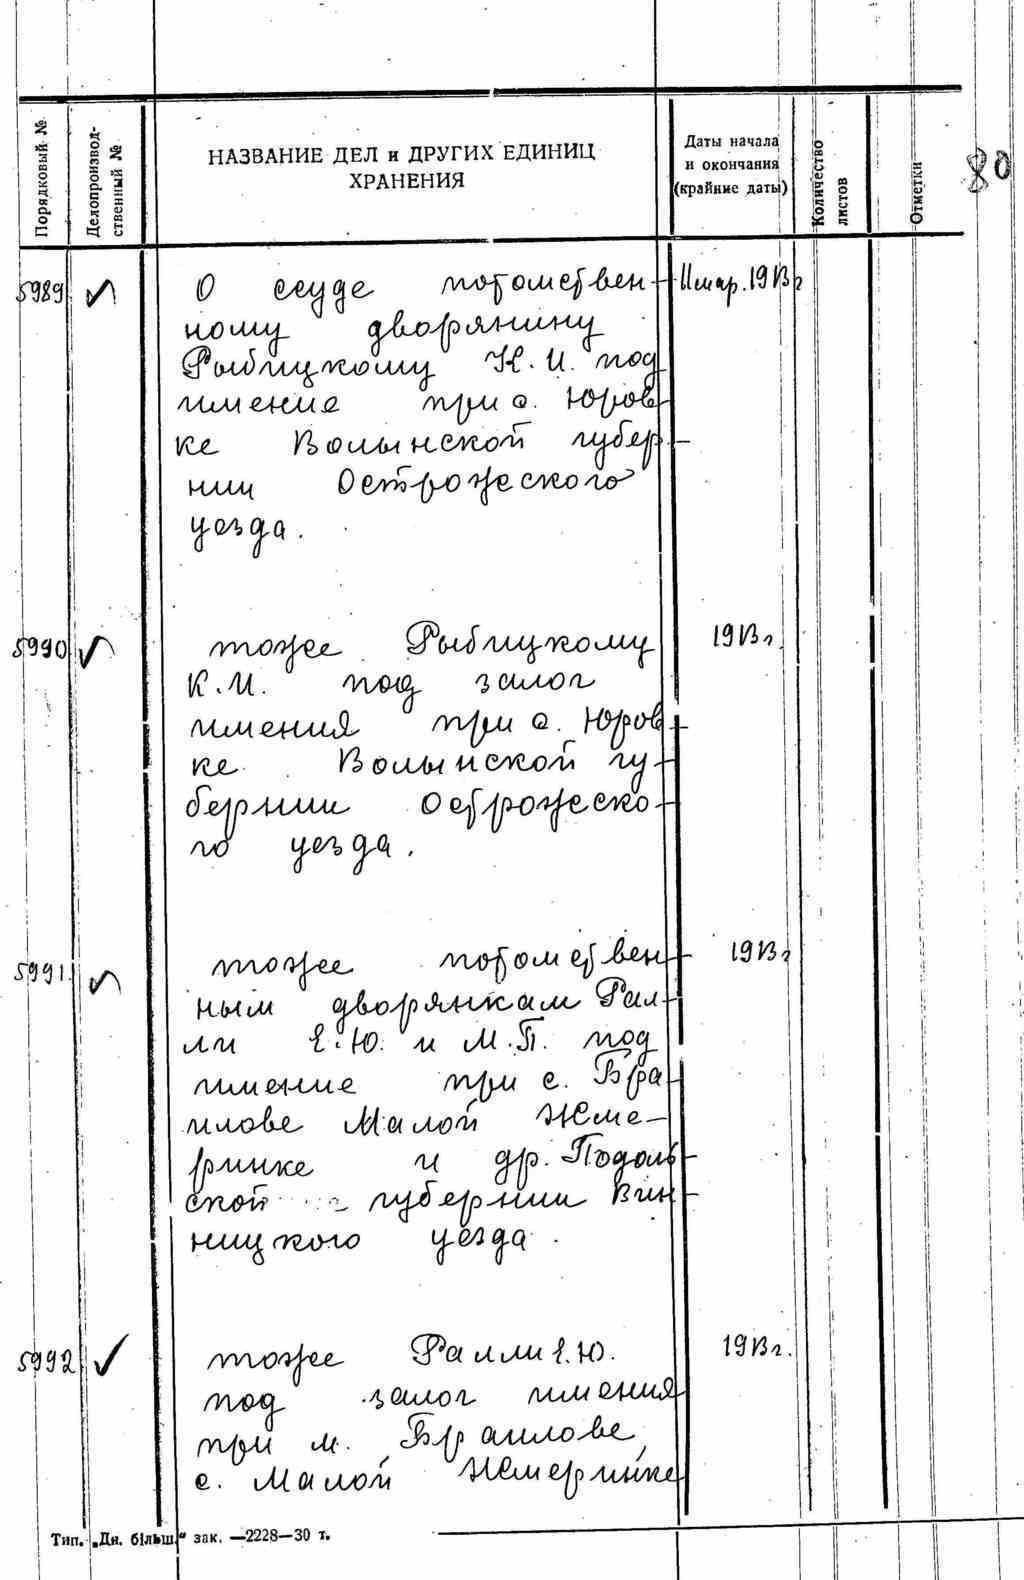 Порядковый №
Делопроизвод-
ственный №
НАЗВАНИЕ ДЕЛ и ДРУГИХ ЕДИНИЦ
ХРАНЕНИЯ
Даты начала
и окончания
(крайние даты)
Количество
листов
Отметки
80
5989 ✓ О ссуде потомствен- 11 мар. 1913 г
ному дворянину
Рыбицкому К. И. под
имение при с. Юров-
ке Волынской губер-
нии Острожеского
уезда.
5990 ✓ тоже Рыбицкому 1913 г.
К. И. под залог
имения при с. Юров-
ке Волынской гу-
бернии Острожеско-
го уезда.
5991. ✓ тоже потомствен- 1913 г
ным дворянкам Рал-
ли Е. Ю. и М. П. под
имение при с. Бра-
илове Малой Жме-
ринке и др. Подоль-
ской губернии Вин-
ницкого уезда.
5992 ✓ тоже Ралли Е. Ю. 1913 г.
под залог имения
при м. Браилове,
с. Малой Жмеринке
Тип. „Дн. більш.“ зак. —2228—30 т.